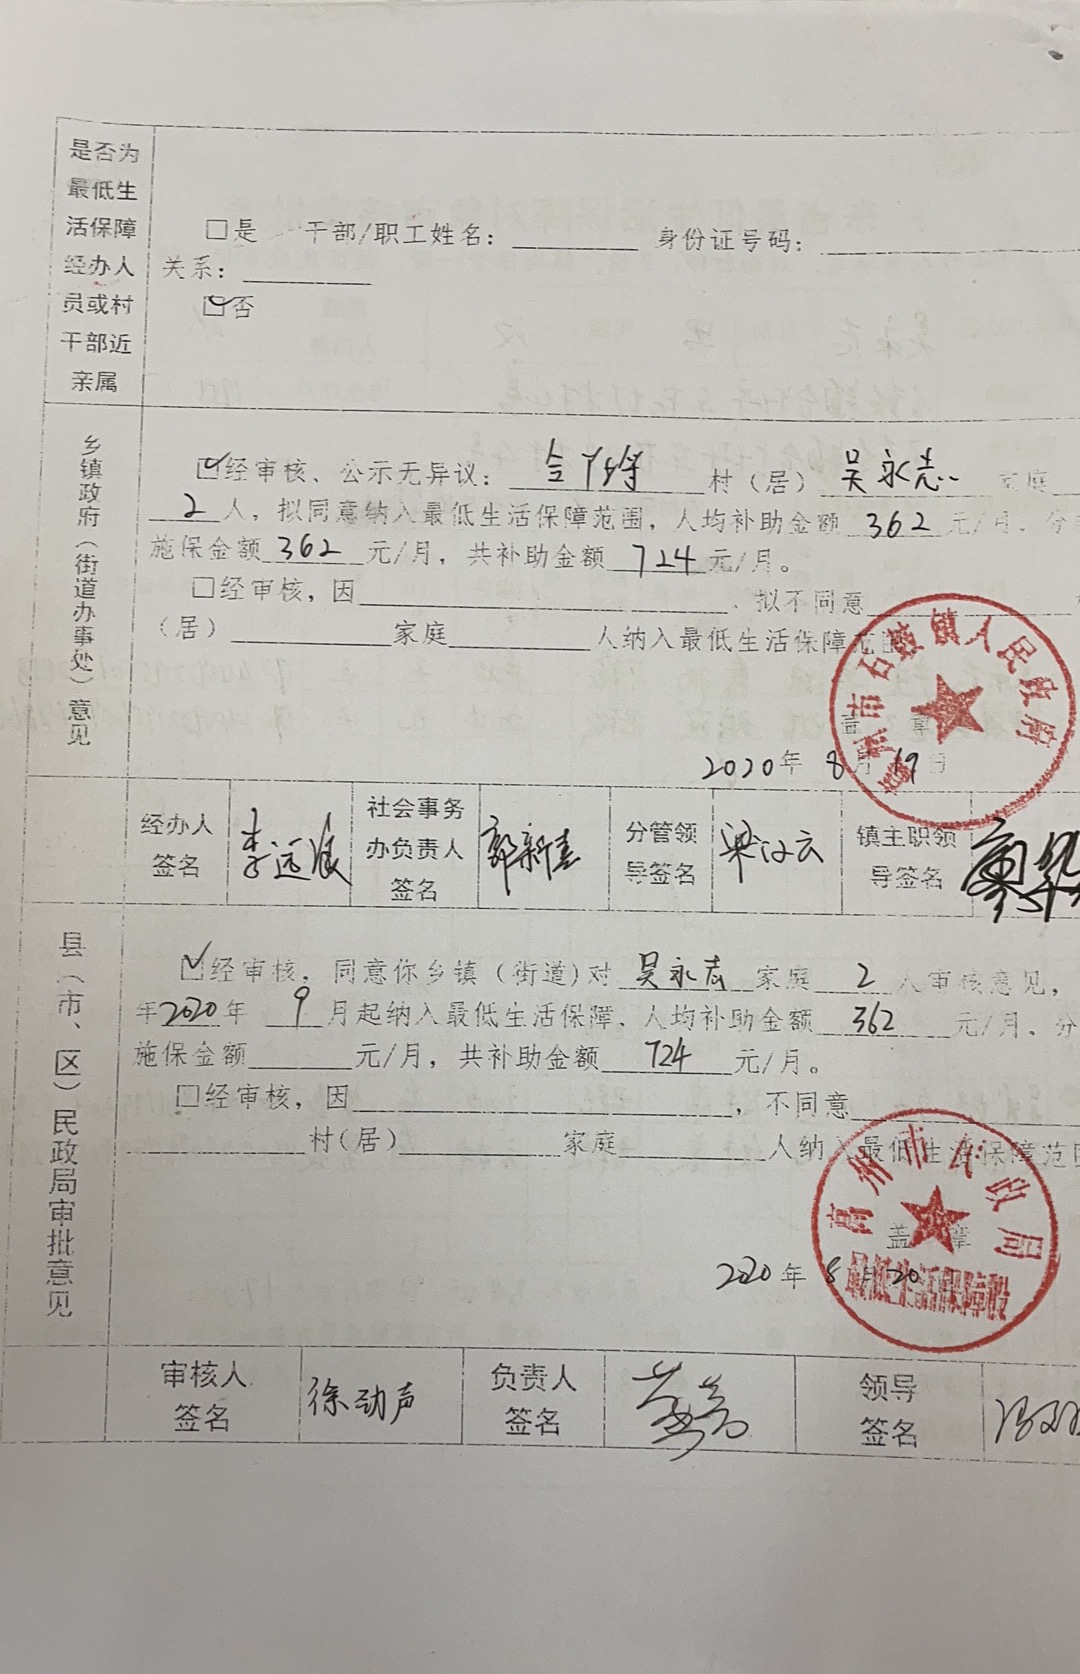 是否为
最低生
活保障
经办人
员或村
干部近
亲属
□是 干部/职工姓名：________ 身份证号码：
关系：________
☑否
乡镇政府（街道办事处）意见
☑经审核、公示无异议： 村（居） 吴永志 家庭
2 人，拟同意纳入最低生活保障范围，人均补助金额 362 元/月、分
施保金额 362 元/月，共补助金额 724 元/月。
□经审核，因________________、拟不同意
（居）________家庭________人纳入最低生活保障范围
市石鼓镇人民政府
盖 章
2020年 8月 19日
经办人
签名
李远浪
社会事务
办负责人
签名
郭新喜
分管领
导签名
梁汉云
镇主职领
导签名
廖华
县（市、区）民政局审批意见
☑经审核，同意你乡镇（街道）对 吴永志 家庭 2 人审核意见，
年2020年 9 月起纳入最低生活保障、人均补助金额 362 元/月、分
施保金额______元/月，共补助金额 724 元/月。
□经审核，因________________，不同意
________村（居）________家庭________人纳入最低生活保障范围
高州市民政局
盖 章
2020年 8月 20
最低生活保障股
审核人
签名
徐劲声
负责人
签名
领导
签名